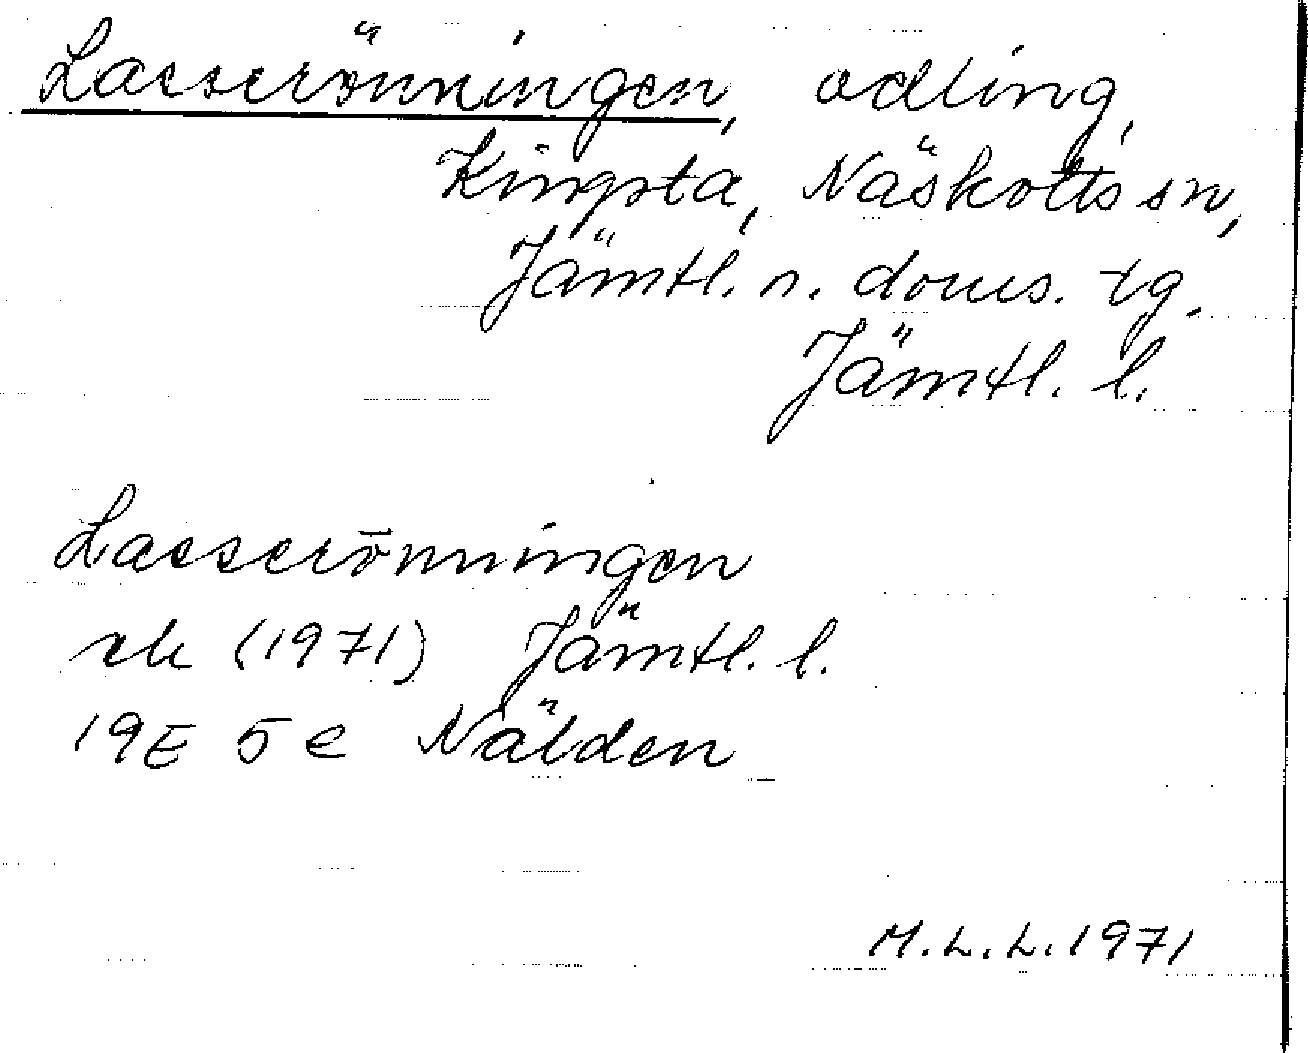 Lasserönningen, odling,
Kingsta, Näskotts sn,
Jämtl. n. doms. tg.
Jämtl. l.
Lasserönningen
ek (1971) Jämtl. l.
19E 5e Nälden
M.L.L. 1971